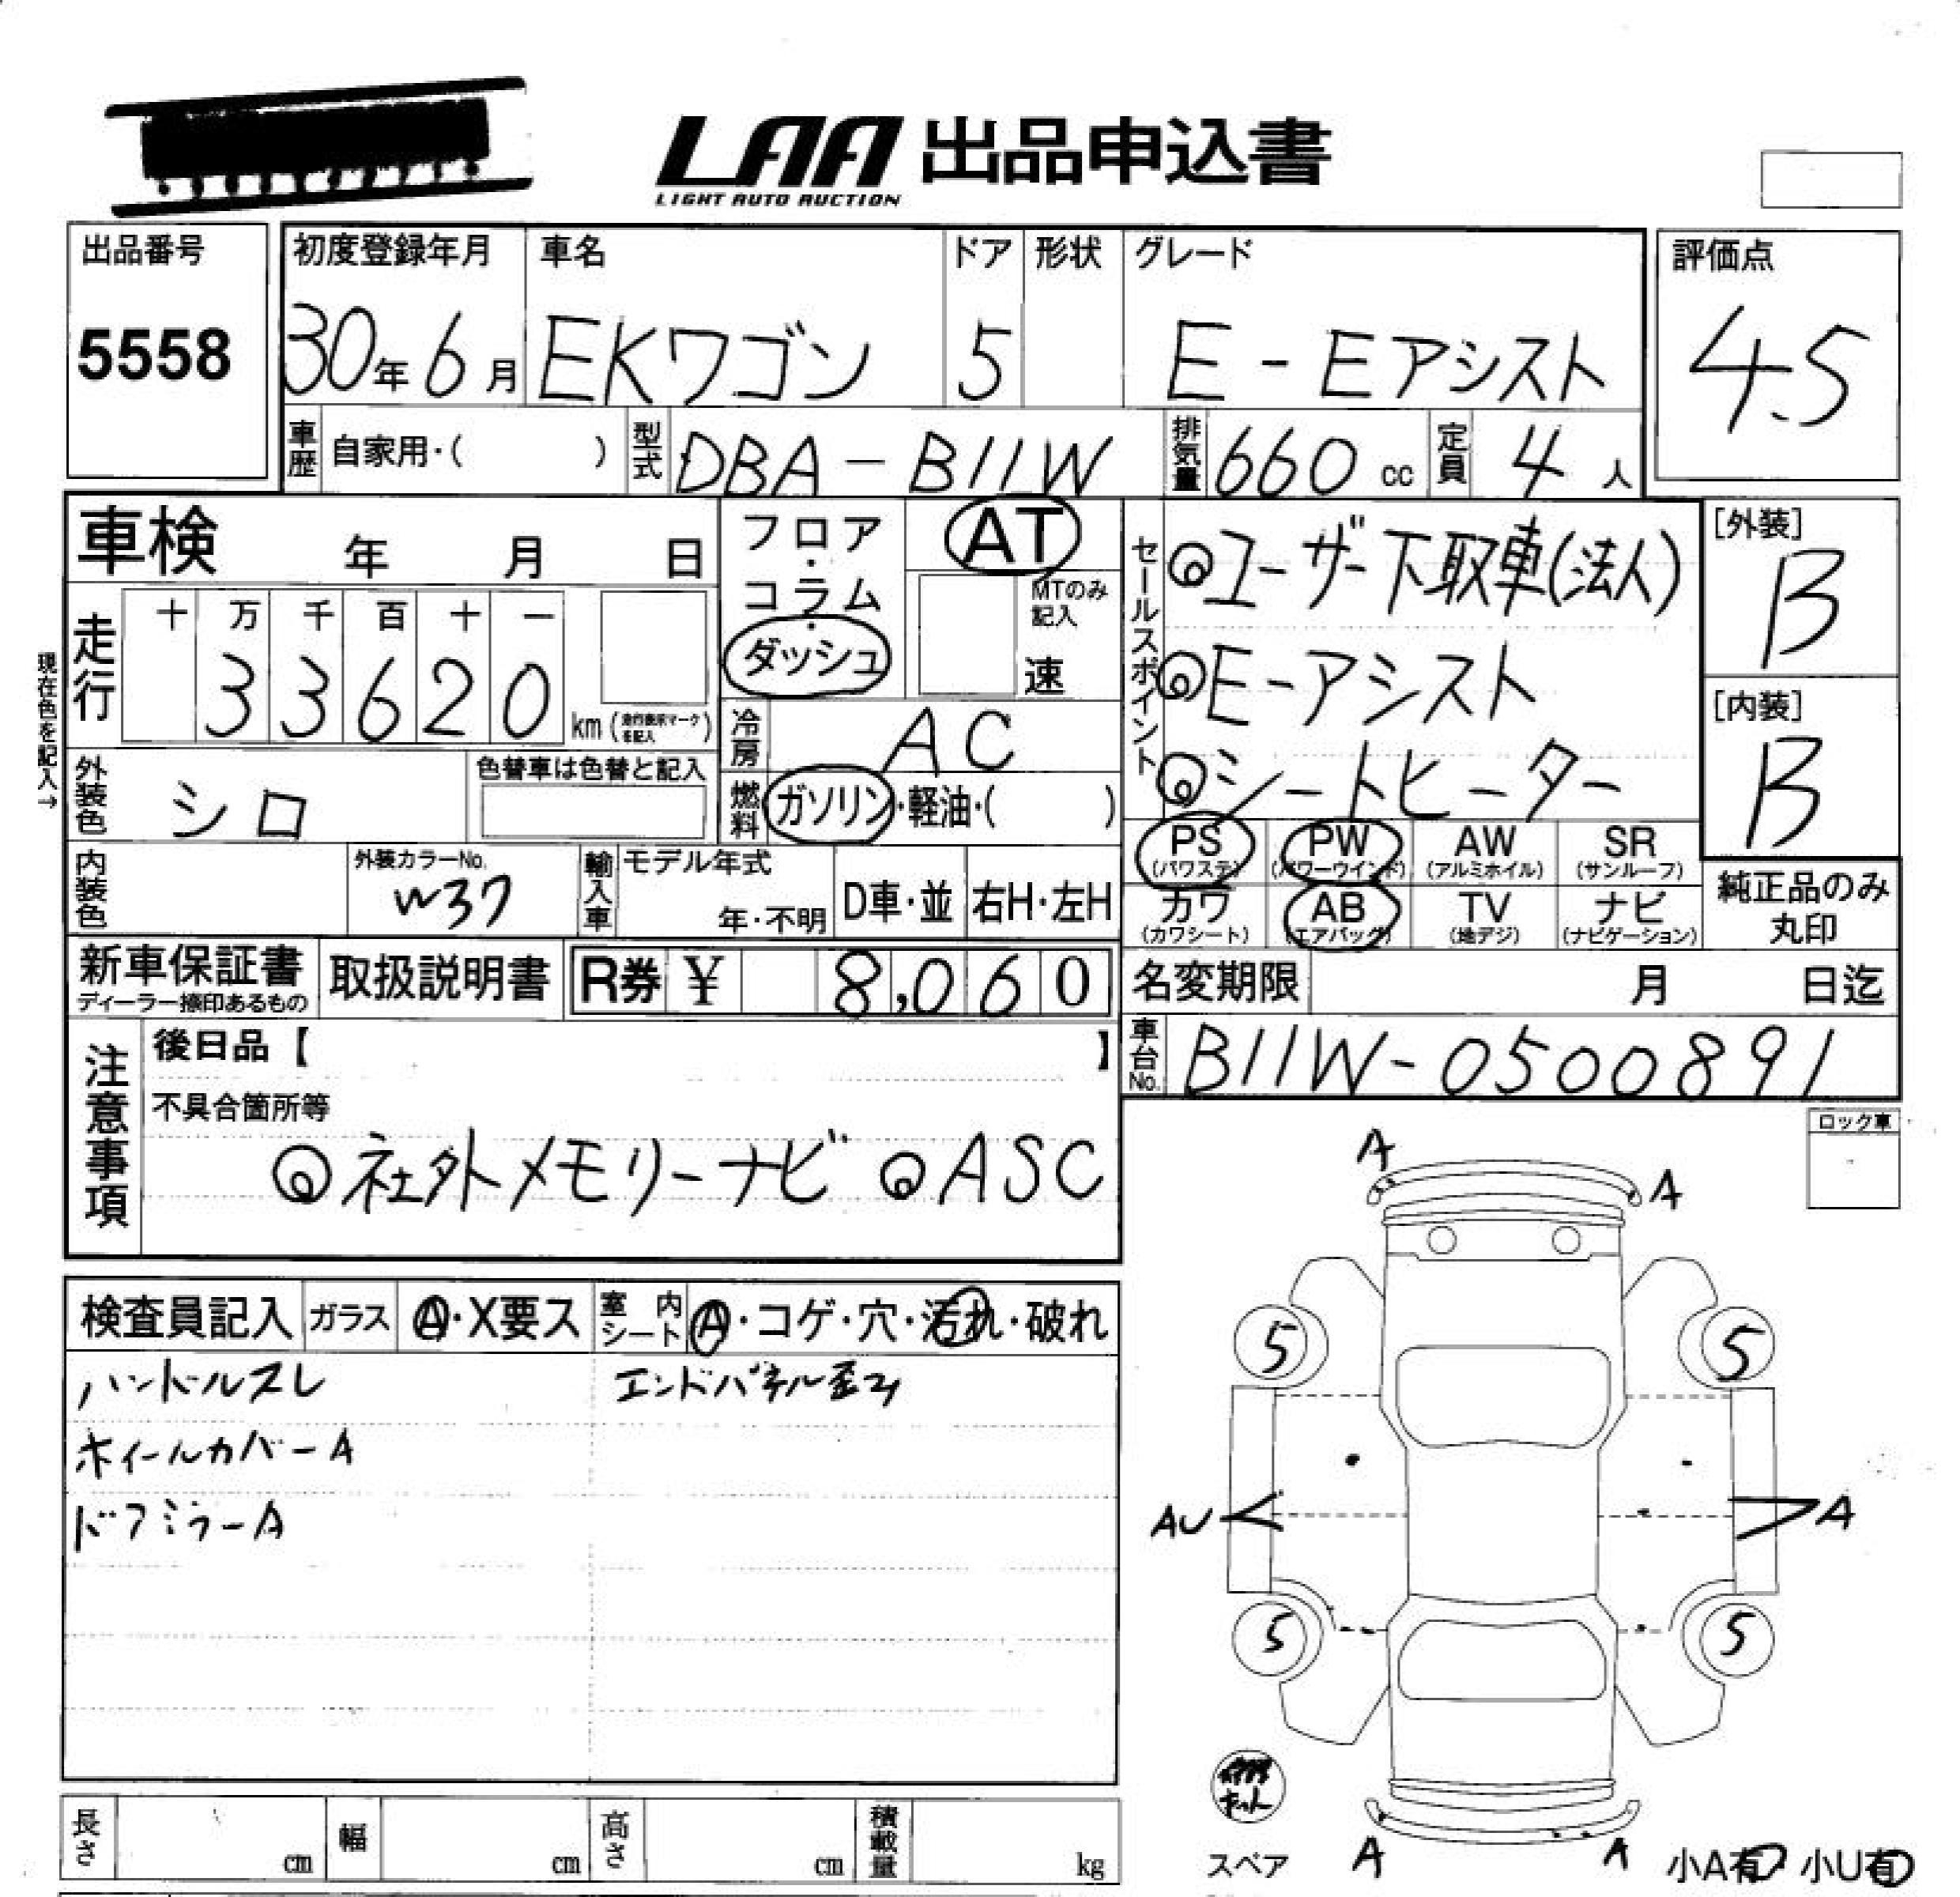 LAA 出品申込書
LIGHT AUTO AUCTION
出品番号 初度登録年月 車名 ドア 形状 グレード 評価点
5558 30年6月 EKワゴン 5 E-Eアシスト 4.5
車歴 自家用・( ) 型式 DBA-B11W 排気量 660cc 定員 4人
車検 年 月 日
フロア・コラム・ダッシュ
AT
MTのみ記入
速
現在色を記入→
走行 十 万 千 百 十 一
33620 km (走行表示マークを記入)
冷房 AC
外装色 シロ 色替車は色替と記入
燃料 ガソリン・軽油・( )
内装色 外装カラーNo. W37
輸入車 モデル年式 年・不明 D車・並 右H・左H
新車保証書 取扱説明書 R券 ¥ 8,060
ディーラー捺印あるもの
セールスポイント
◎ユーザー下取車(法人)
◎E-アシスト
◎シートヒーター
[外装]
B
[内装]
B
PS (パワステ) PW (パワーウインド) AW (アルミホイル) SR (サンルーフ)
カワ (カワシート) AB (エアバッグ) TV (地デジ) ナビ (ナビゲーション)
純正品のみ
丸印
名変期限 月 日迄
車台No. B11W-0500891
注意事項
後日品【 】
不具合箇所等
◎社外メモリーナビ ◎ASC
ロック車
検査員記入 ガラス A・X要ス 室内シート A・コゲ・穴・汚れ・破れ
ハンドルスレ エンドパネル歪み
ホイールカバーA
ドアミラーA
A
A
5 5
AU A
5 5
キット
スペア A A 小A有 小U有
長さ cm 幅 cm 高さ cm 積載量 kg